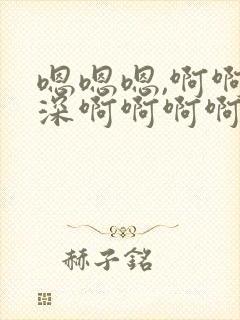 嗯嗯嗯,啊啊
深啊啊啊啊
赫子铭